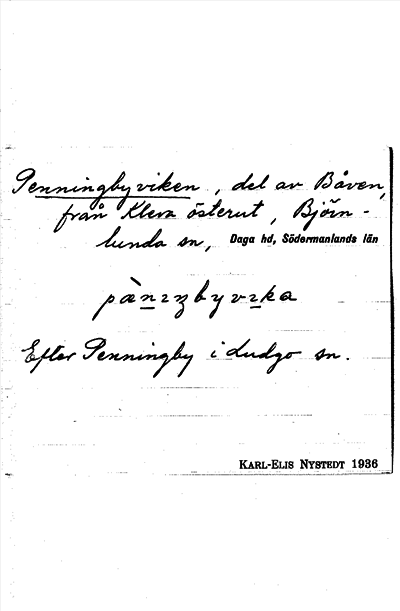 Penningbyviken, del av Båven,
från Kleva österut, Björn-
lunda sn, Daga hd, Södermanlands län
Efter Penningby i Ludgo sn.
KARL-ELIS NYSTEDT 1936